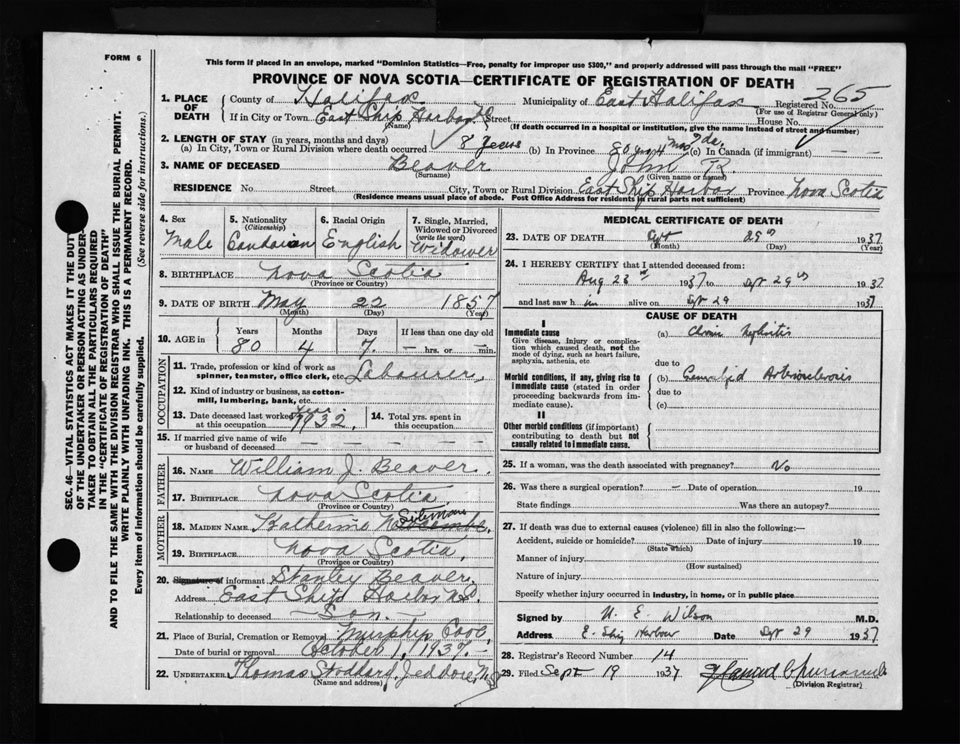 FORM 6
This form if placed in an envelope, marked "Dominion Statistics—Free, penalty for improper use $300," and properly addressed will pass through the mail "FREE"
PROVINCE OF NOVA SCOTIA—CERTIFICATE OF REGISTRATION OF DEATH
SEC. 46—VITAL STATISTICS ACT MAKES IT THE DUTY
OF THE UNDERTAKER OR PERSON ACTING AS UNDER-
TAKER TO OBTAIN ALL THE PARTICULARS REQUIRED
IN THE "CERTIFICATE OF REGISTRATION OF DEATH"
AND TO FILE THE SAME WITH THE DIVISION REGISTRAR WHO SHALL ISSUE THE BURIAL PERMIT.
WRITE PLAINLY WITH UNFADING INK. THIS IS A PERMANENT RECORD.
Every item of information should be carefully supplied. (See reverse side for instructions.)
1. PLACE OF DEATH
County of Halifax Municipality of East Halifax Registered No. 265
(For use of Registrar General only)
If in City or Town East Ship Harbor Street House No.
(Name) (If death occurred in a hospital or institution, give the name instead of street and number)
2. LENGTH OF STAY (in years, months and days)
(a) In City, Town or Rural Division where death occurred 8 (b) In Province 80 yrs 4 mos 7 da. (c) In Canada (if immigrant) — —
3. NAME OF DECEASED Beaver John R.
(Surname) (Given name or names)
RESIDENCE No. Street City, Town or Rural Division East Ship Harbor Province Nova Scotia
(Residence means usual place of abode. Post Office Address for residents in rural parts not sufficient)
4. Sex
Male
5. Nationality
(Citizenship)
Canadaian
6. Racial Origin
English
7. Single, Married,
Widowed or Divorced
(write the word)
Widower
8. BIRTHPLACE Nova Scotia
(Province or Country)
9. DATE OF BIRTH May 22 1857
(Month) (Day) (Year)
10. AGE in
Years Months Days If less than one day old
80 4 7. — hrs. or — min.
OCCUPATION
11. Trade, profession or kind of work as
spinner, teamster, office clerk, etc. Labourer
12. Kind of industry or business, as cotton-
mill, lumbering, bank, etc.
13. Date deceased last worked
at this occupation year 1932.
14. Total yrs. spent in
this occupation
15. If married give name of wife
or husband of deceased — — — —
FATHER
16. NAME William J. Beaver.
17. BIRTHPLACE Nova Scotia.
(Province or Country)
MOTHER
18. MAIDEN NAME Katherine
19. BIRTHPLACE Nova Scotia,
(Province or Country)
20. Signature of informant Stanley Beaver,
Address East Ship Harbor N.S.
Relationship to deceased Son.
21. Place of Burial, Cremation or Removal Murphy Cove,
Date of burial or removal October 1, 1937.
22. UNDERTAKER Thomas Stoddard, Jeddore, N.S.
(Name and address)
MEDICAL CERTIFICATE OF DEATH
23. DATE OF DEATH Sept 29th 1937
(Month) (Day) (Year)
24. I HEREBY CERTIFY that I attended deceased from:
Aug 23rd 1937 to Sept 29th 1937
and last saw him alive on Sept 29 1937
CAUSE OF DEATH
I
Immediate cause
Give disease, injury or complica-
tion which caused death, not the
mode of dying, such as heart failure,
asphyxia, asthenia, etc.
(a) Chronic Nephritis
due to
Morbid conditions, if any, giving rise to
immediate cause (stated in order
proceeding backwards from im-
mediate cause).
(b) Generalized Arteriosclerosis
due to
(c)
II
Other morbid conditions (if important)
contributing to death but not
causally related to immediate cause.
25. If a woman, was the death associated with pregnancy? No
26. Was there a surgical operation? — Date of operation 19
State findings Was there an autopsy?
27. If death was due to external causes (violence) fill in also the following:—
Accident, suicide or homicide? Date of injury 19
(State which)
Manner of injury
(How sustained)
Nature of injury
Specify whether injury occurred in industry, in home, or in public place
Signed by N. E. Wilson M.D.
Address E. Ship Harbour Date Sept 29 1937
28. Registrar's Record Number 14
29. Filed Sept 19 1937
(Division Registrar)